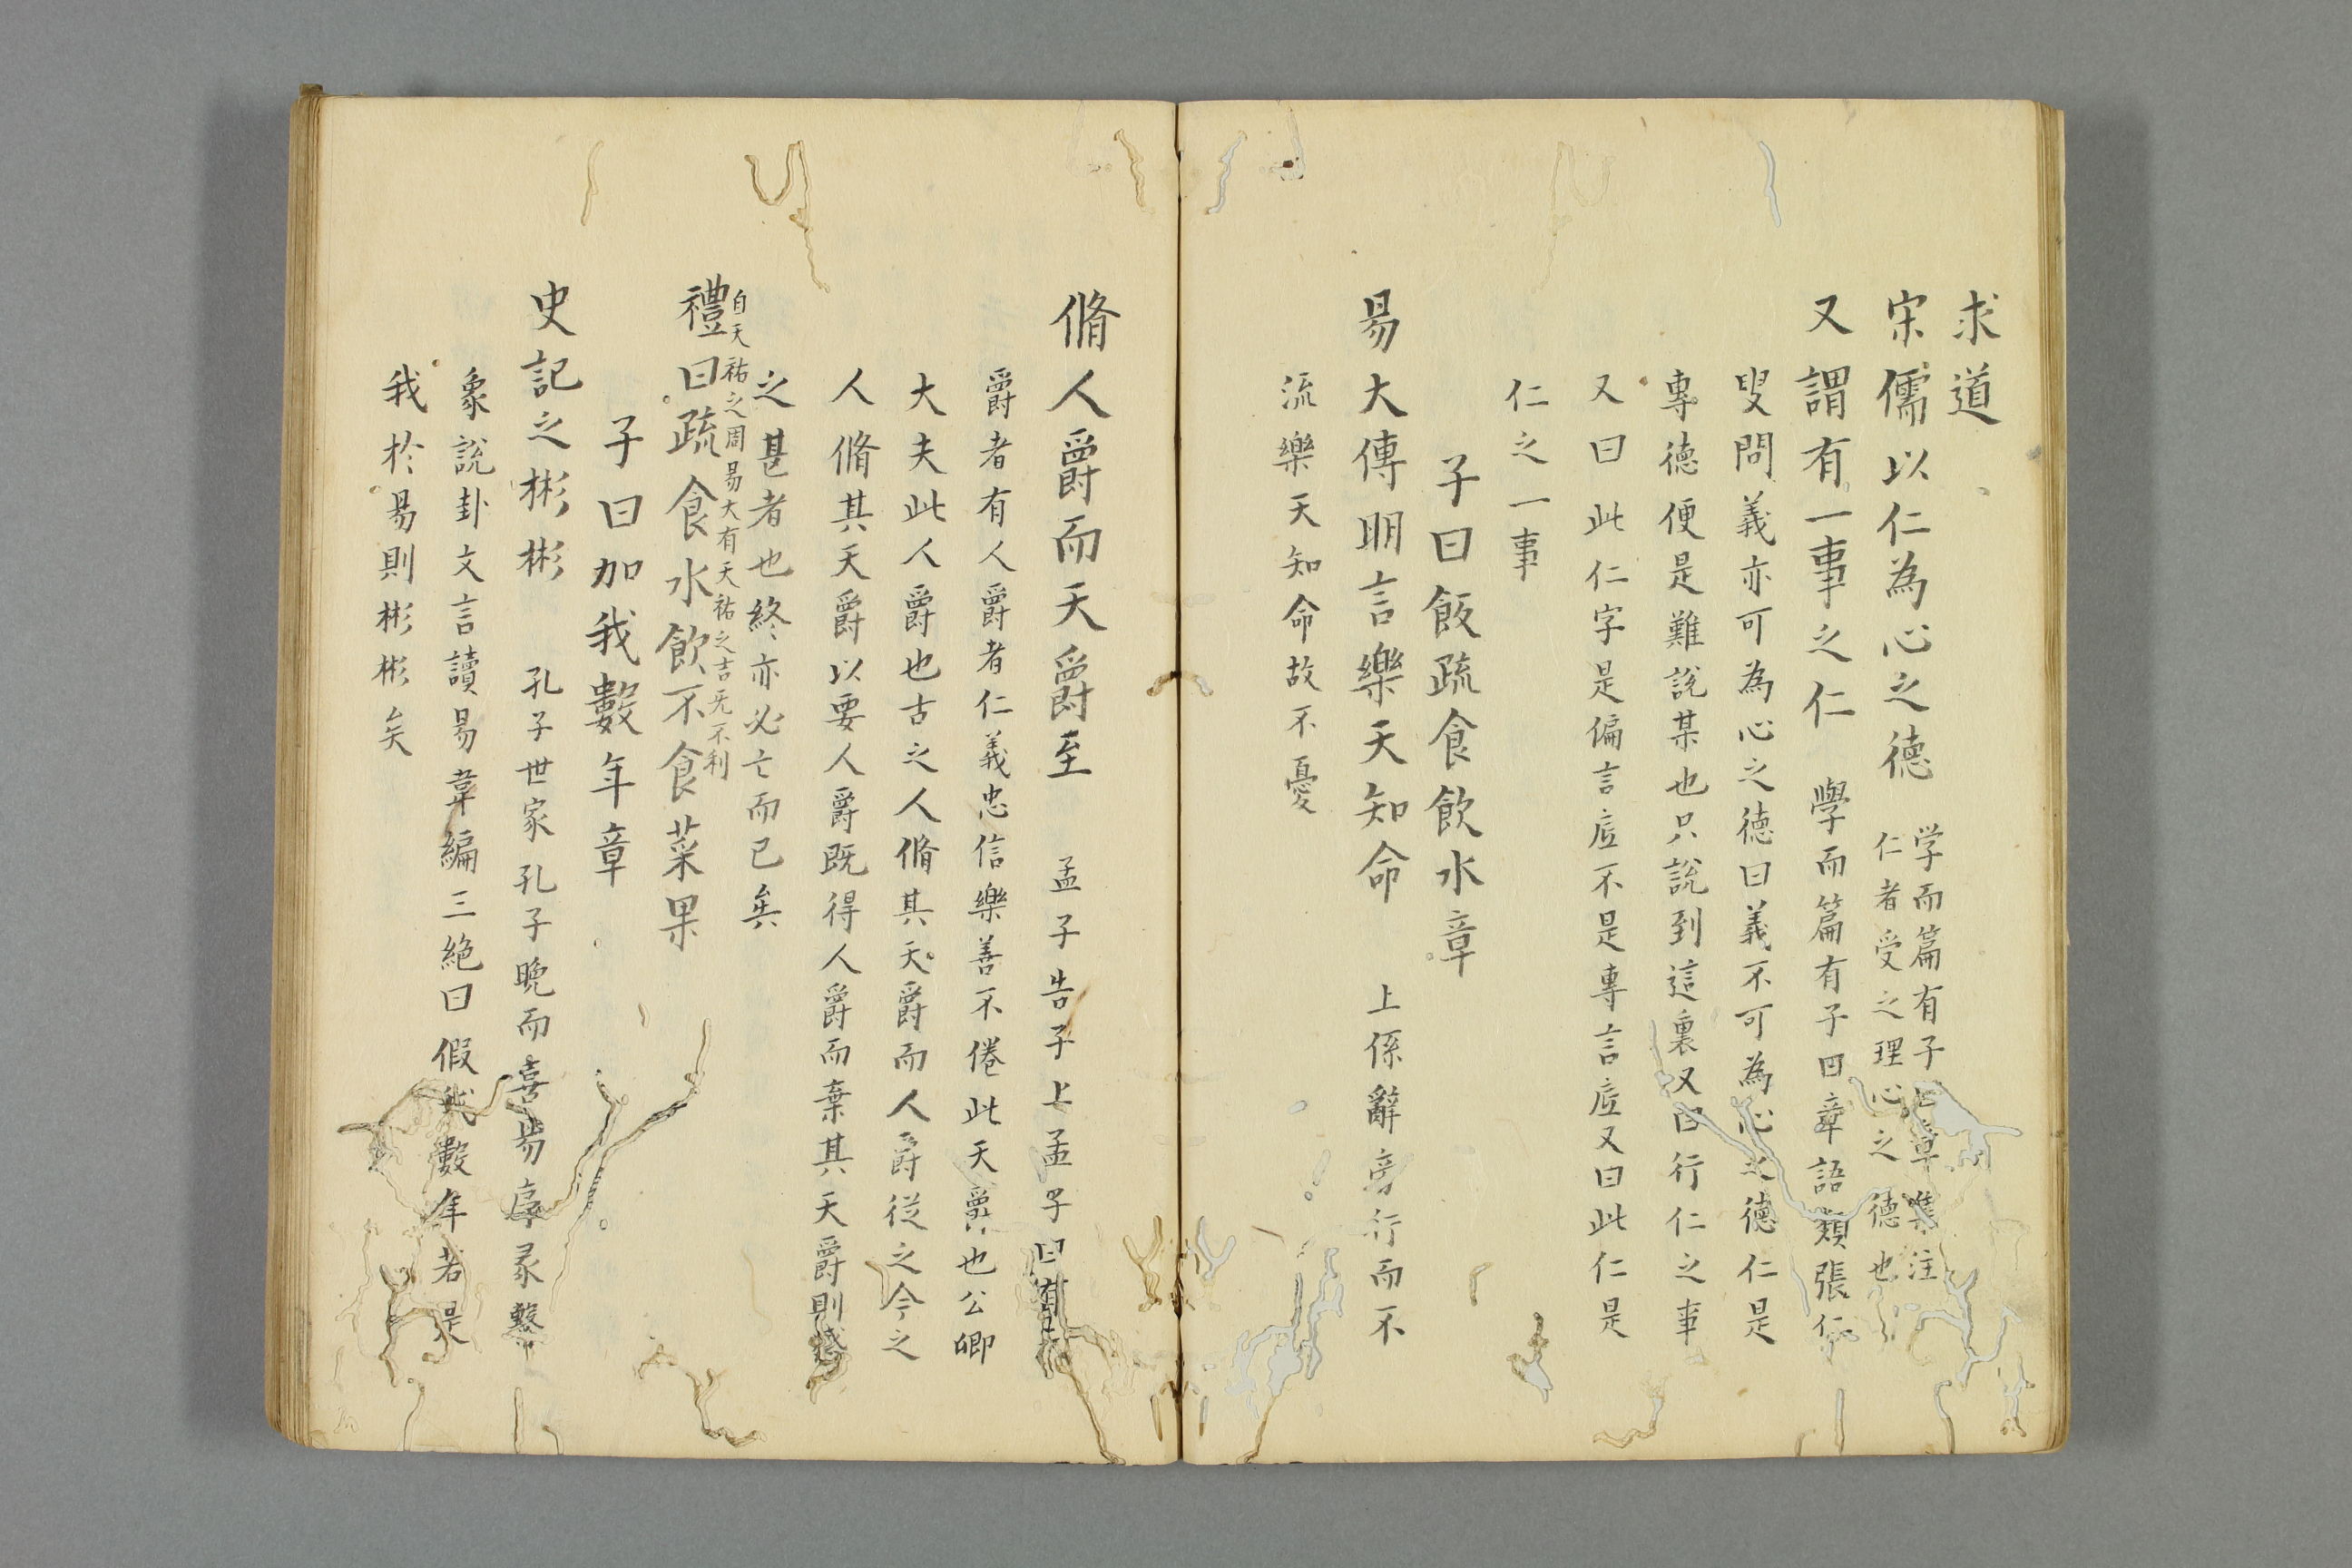 求道
宋儒以仁為心之德 学而篇有子曰章集注
仁者受之理心之德也
又謂有一事之仁 學而篇有子曰章語類張仁
叟問義亦可為心之德曰義不可為心之德仁是
專德便是難說某也只說到這裏又曰行仁之事
又曰此仁字是偏言㡯不是專言㡯又曰此仁是
仁之一事
子曰飯疏食飲水章
易大傳明言樂天知命 上係辭旁行而不
流樂天知命故不憂
脩人爵而天爵至 孟子告子上孟子曰有天
爵者有人爵者仁義忠信樂善不倦此天爵也公卿
大夫此人爵也古之人脩其天爵而人爵從之今之
人脩其天爵以要人爵既得人爵而棄其天爵則惑
之甚者也終亦必亡而已矣
自天祐之周易大有天祐之吉无不利
禮曰疏食水飲不食菜果
子曰加我數年章
史記之彬彬 孔子世家孔子晚而喜易序彖繫
象說卦文言讀易韋編三絶曰假我數年若是
我於易則彬彬矣